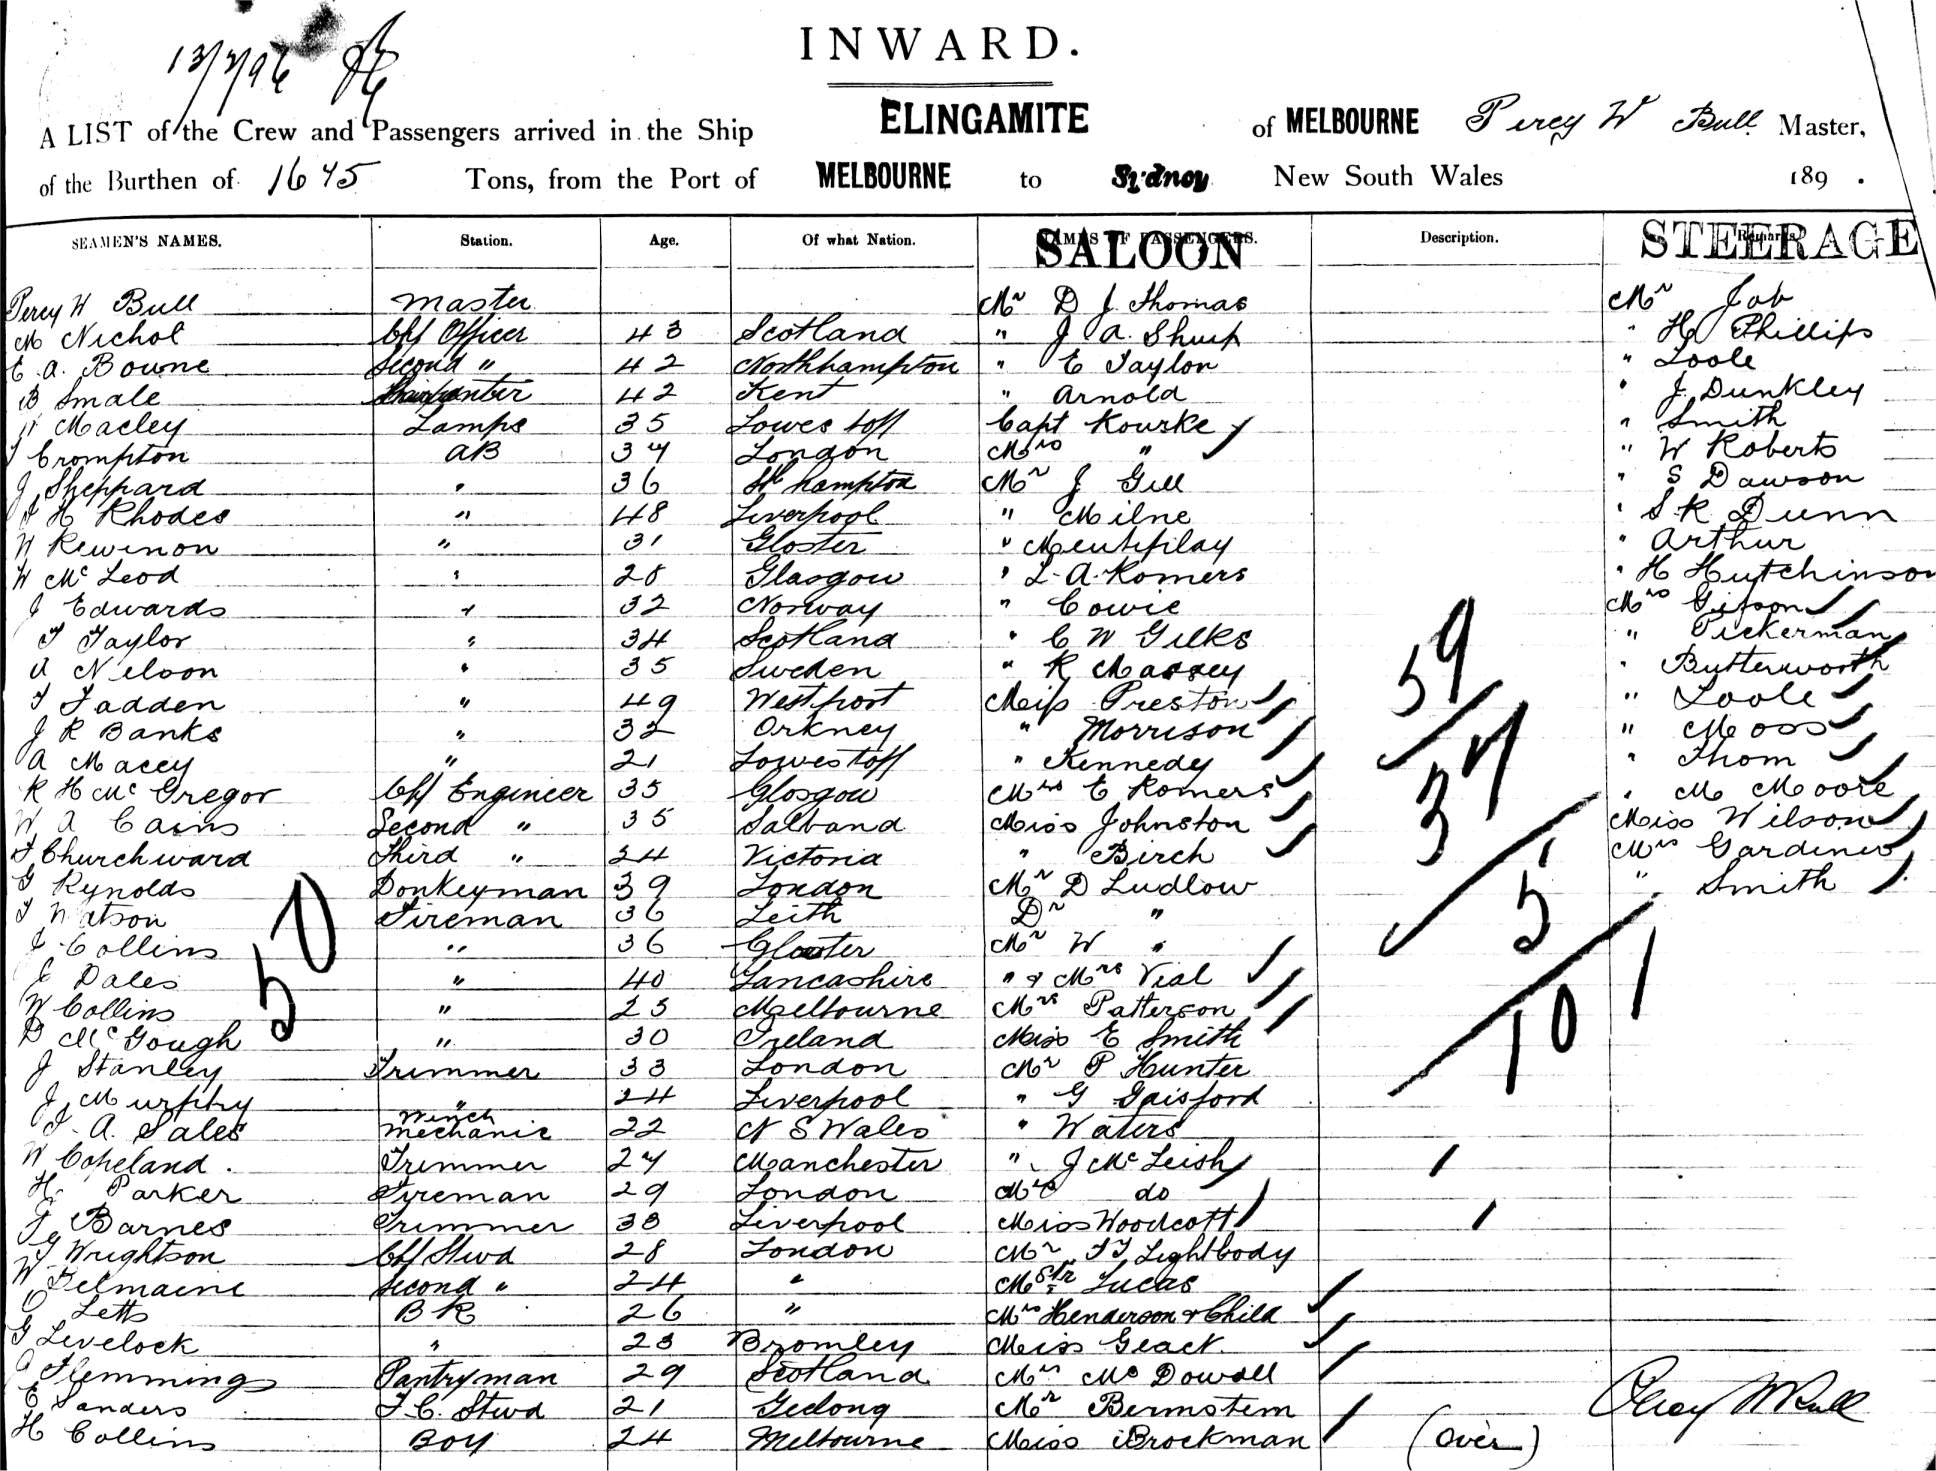 13/2/96
INWARD.
A LIST of the Crew and Passengers arrived in the Ship ELINGAMITE of MELBOURNE Percy W Bull Master,
of the Burthen of 1675 Tons, from the Port of MELBOURNE to Sydney New South Wales 189 .
SEAMEN'S NAMES. Station. Age. Of what Nation. NAMES OF PASSENGERS. SALOON Description. Remarks STEERAGE
Percy W Bull Master Mr D J Thomas Mr Job
M Nichol Chf Officer 43 Scotland " J A Sharp " H Phillips
E. A. Bowne Second " 42 Northhampton " E Taylor " Toole
B Smale 42 Kent " Arnold " J Dunkley
Macley Lamps 35 Lowestoff Capt Rourke " Smith
Crompton AB 37 London Mrs " " W Roberts
J Sheppard " 36 Sthhampton Mr J Gill " S Dawson
H Rhodes " 48 Liverpool " Milne " S. R Dunn
W Rewinon " 31 Gloster " " Arthur
W McLeod " 28 Glasgow " L. A. Romers " H Hutchinson
J Edwards " 32 Norway " Cowie Mrs
T Taylor " 34 Scotland " C W Gilks " Pickerman
A Nelson " 35 Sweden " R Massey " Butterworth
T Fadden " 49 Westport Miss Preston " Toole
J R Banks " 32 Orkney " Morrison " Moss
A Macey " 21 Lowestoff " Kennedy " Thom
R H McGregor Chf Engineer 35 Glosgow Mrs E Romers " M Moore
W A Cains Second " 35 Miss Johnston Miss Wilson
T Churchward Third " 24 Victoria " Birch Mrs Gardiner
G Rynolds Donkeyman 39 London Mr D Ludlow " Smith
T Watson Fireman 36 Leith Dr "
J Collins " 36 Gloster Mr W "
J Dales " 40 Lancashire " & Mrs Vial
W Collins " 25 Melbourne Mrs Patterson
D McGough " 30 Ireland Miss E Smith
J Stanley Trimmer 33 London Mr P Hunter
J Murphy " 24 Liverpool " G Gaisford
A. Sales Winch Mechanic 22 N S Wales " Waters
W Copeland. Trimmer 27 Manchester " J McLeish
H. Parker Fireman 29 London Mrs do
Barnes Trimmer 38 Liverpool Miss Woodcott
Wrightson Chf Stwd 28 London Mr Lightbody
W Second " 24 " Mstr Lucas
Letts BR 26 " Mrs Henderson & Child
G Levelock " 23 Bromley Miss Geack
Flemming Pantryman 29 Scotland Mrs McDowall
E Sanders F. C. Stwd 21 Gelong Mr Bernstein
H Collins Boy 24 Melbourne Miss Brockman
50
59
37
5
10
1
Percy W Bull
(over)